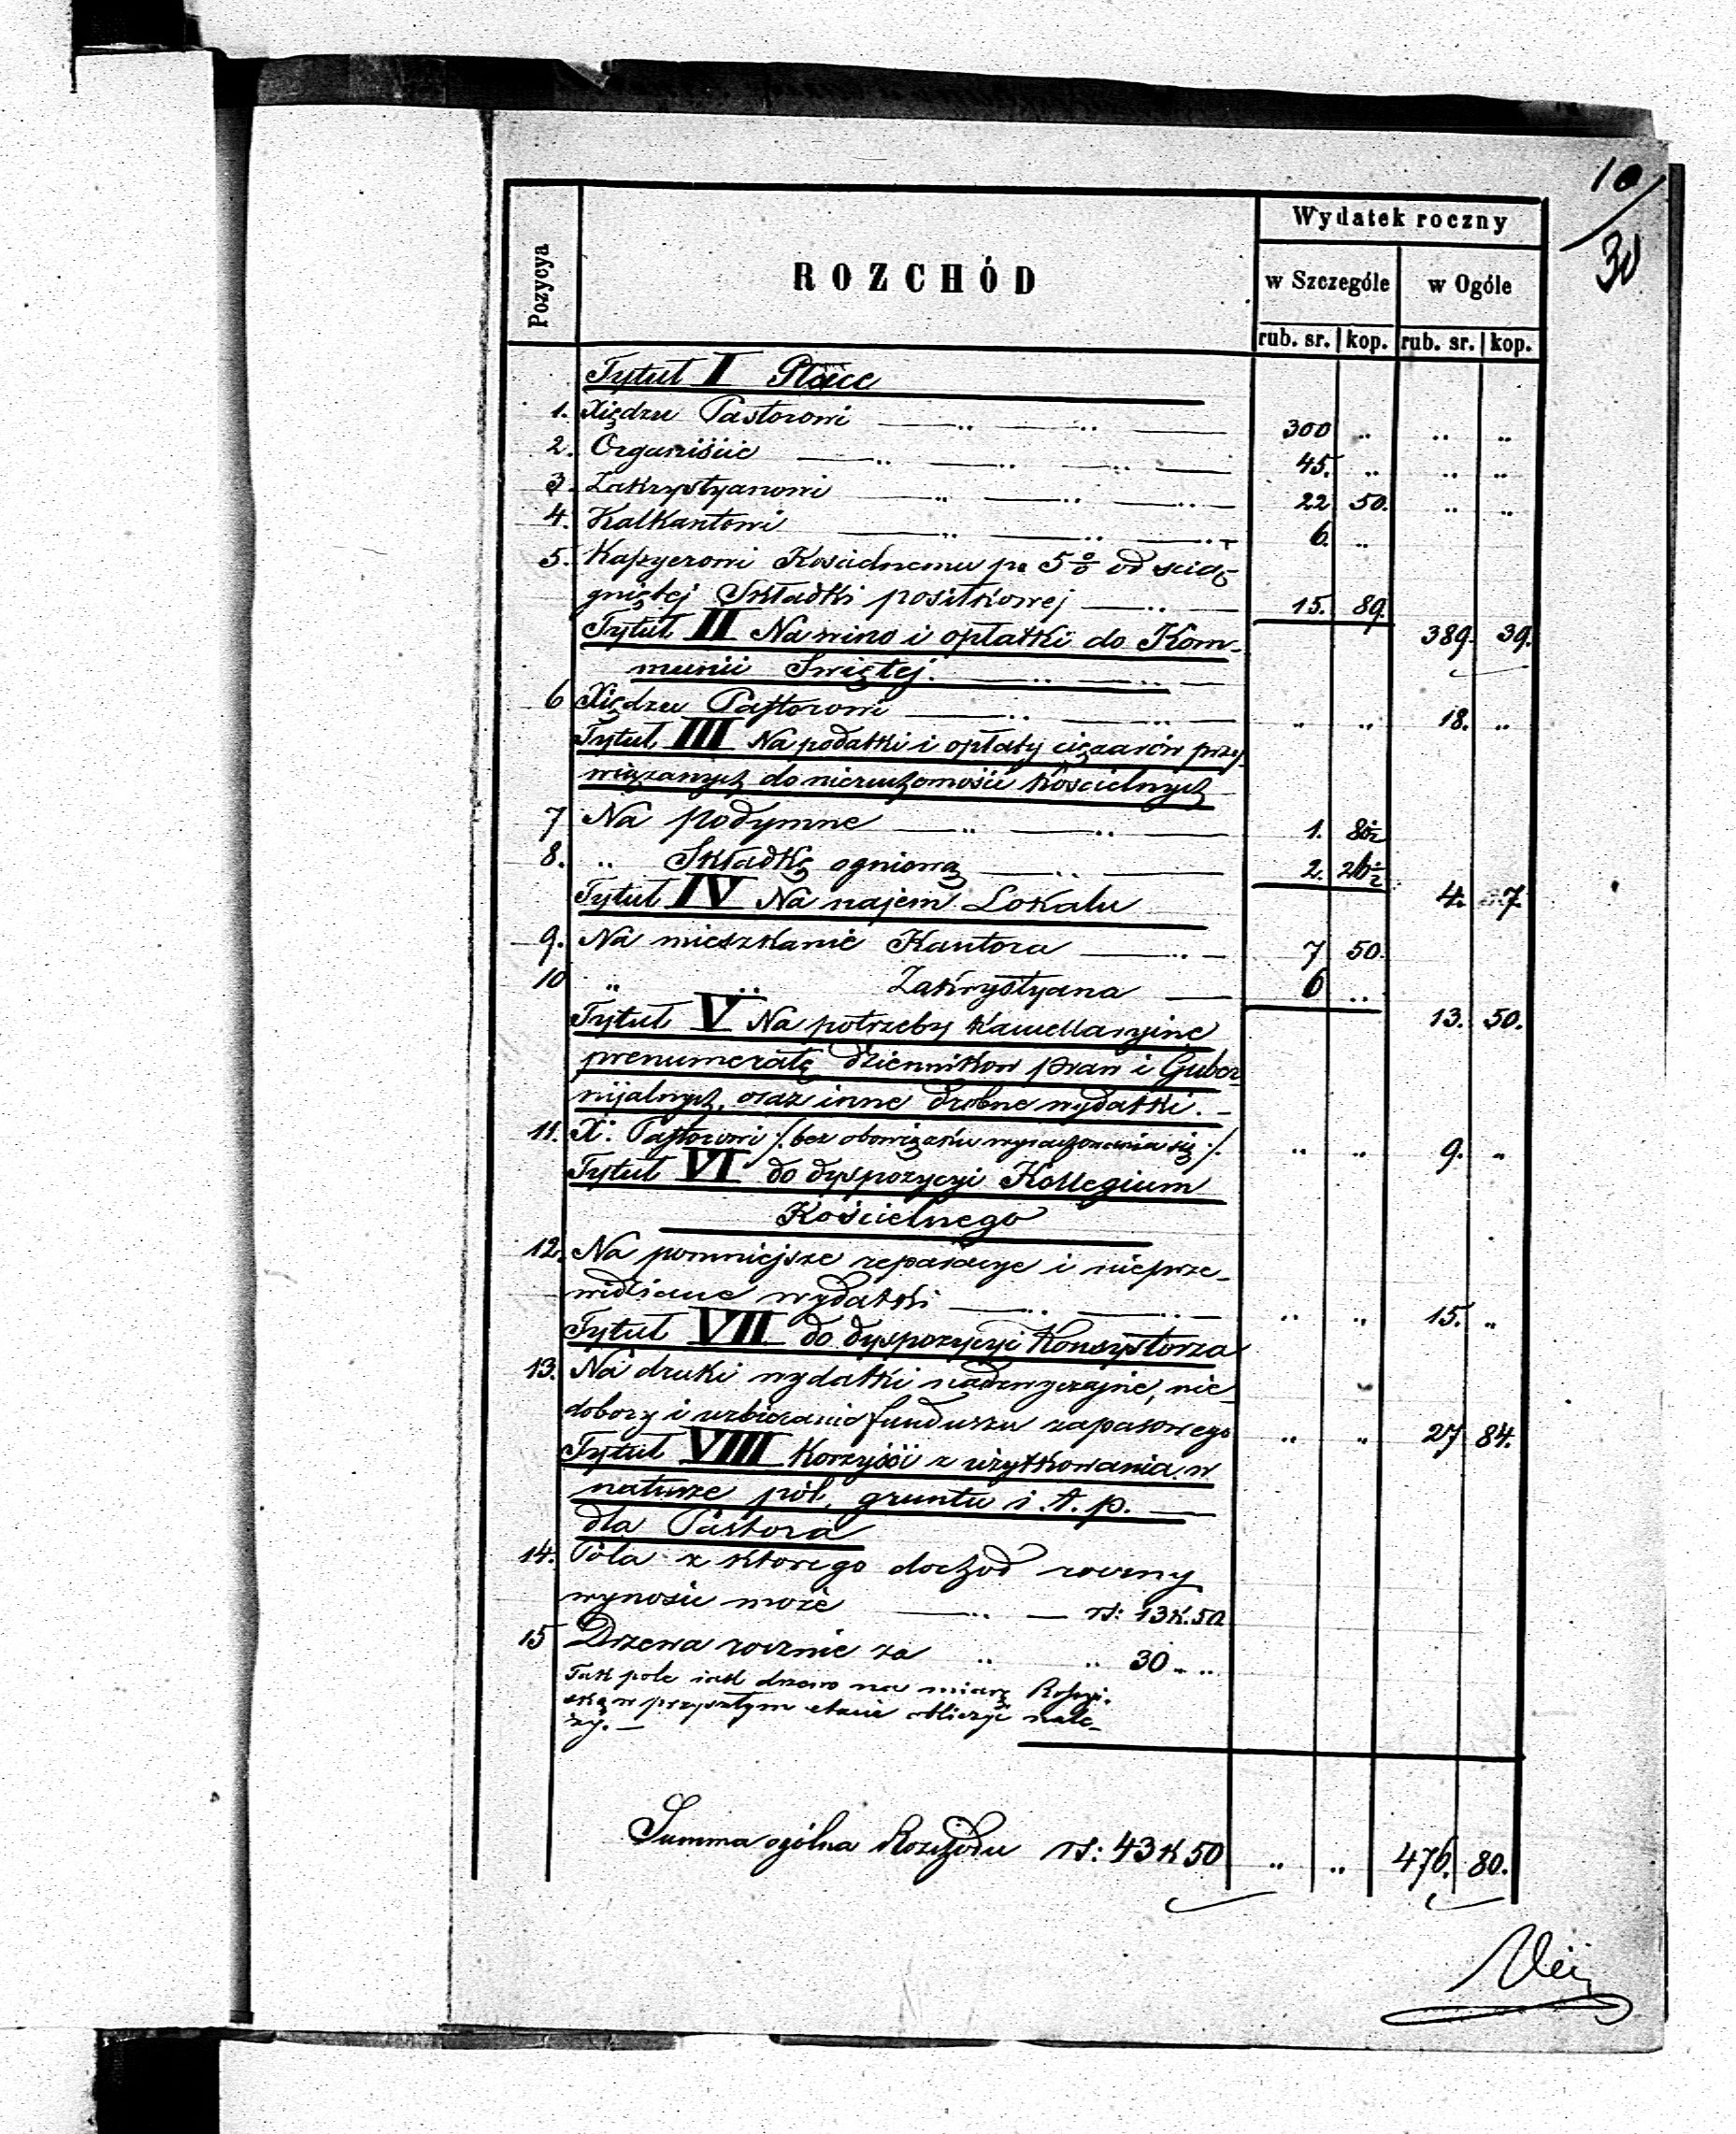 10/30
Wydatek roczny
Pozycya
ROZCHÓD
w Szczególe w Ogóle
rub. sr. kop. rub. sr. kop.
Tytuł I Płace
1. Xiędzu Pastorowi 300 „ „ „
2. Organiście 45. „ „ „
3. Zakrystyanowi 22 50. „ „
4. Kalkantowi 6. „
5. Kassyerowi Kościelnemu po 5% od ściąg-
gniętej Składki positkowej 15. 89.
389. 39.
Tytuł II Na wino i opłatki do Kom-
munii Swiętej.
6 Xiędzu Pastorowi „ „ 18. „
Tytuł III Na podatki i opłaty ciężarów przy-
wiązanych do nieruchomości kościelnych
7 Na podymne 1. 80½
8. „ Składkę ogniową 2. 26½
4. 7.
Tytuł IV Na najem Lokalu
9. Na mieszkanie Kantora 7 50.
10 „ „ Zakrystyana 6 „
13. 50.
Tytuł V Na potrzeby kancellaryjne
prenumeratę dzienników praw i Guber
nijalnych, oraz inne drobne wydatki.
11. X. Pastorowi /. bez obowiązku wyrachowania się ./. „ „ 9. „
Tytuł VI do dyspozycyi Kollegium
Kościelnego
12. Na pomniejsze reparacye i nieprze-
widziane wydatki „ „ 15. „
Tytuł VII do dyspozycyi Konsystorza
13. Na druki wydatki nadzwyczajne, nie
dobory i uzbieranie funduszu zapasowego „ „ 27 84.
Tytuł VIII Korzyści z użytkowania w
naturze pól, gruntu i. t. p.
dla Pastora
14. Pola z którego dochod roczny
wynosić może rs: 13 k. 50
15 Drzewa rocznie za „ „ 30 „ „
Tak pole jak drzewo na miarę Rossyj-
ską w przyszłym etacie obliczyć nale-
ży.
Summa ogólna Rozchodu rs: 43 k 50 „ „ 476. 80.